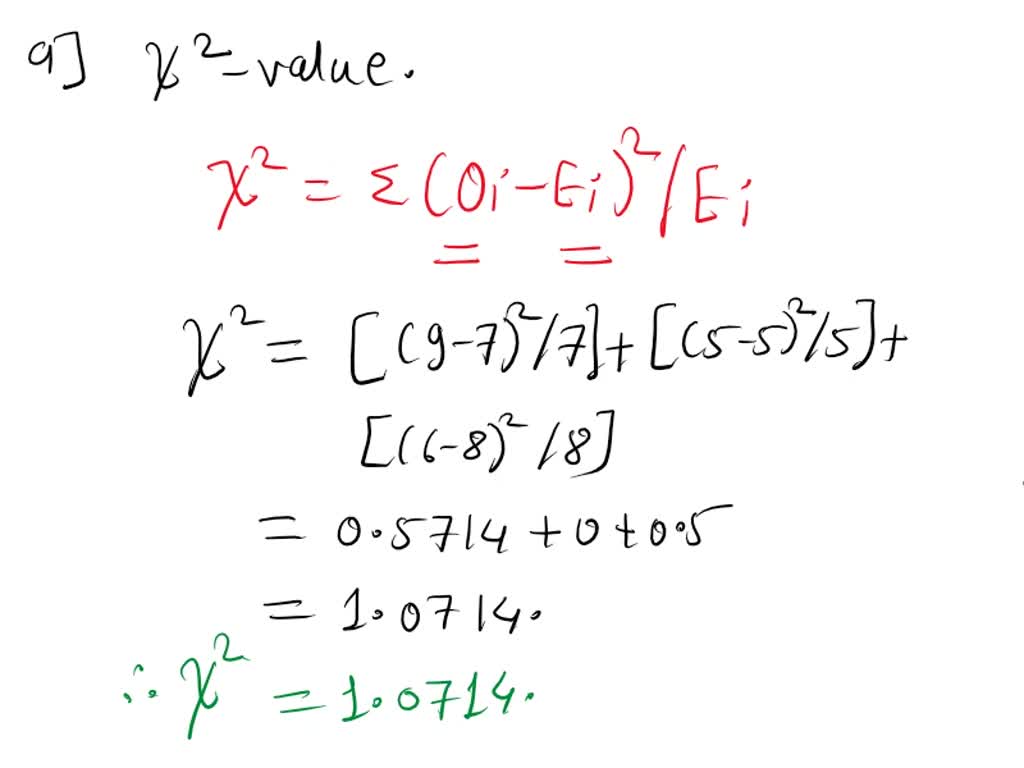 a] χ²-value.
χ² = Σ(Oi-Ei)²/Ei
χ² = [(9-7)²/7]+[(5-5)²/5]+
[(6-8)²/8]
= 0.5714+0+0.5
= 1.0714.
∴ χ² = 1.0714.